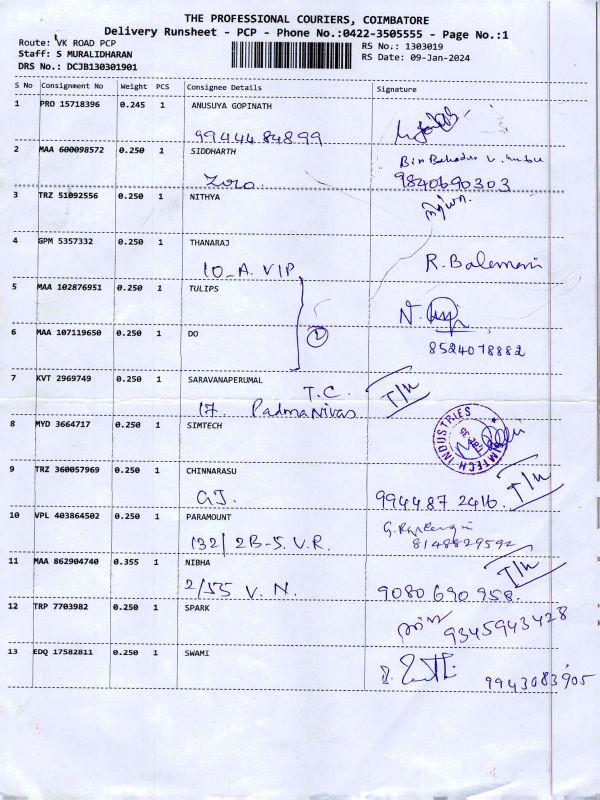 THE PROFESSIONAL COURIERS, COIMBATORE
Delivery Runsheet - PCP - Phone No.:0422-3505555 - Page No.:1
Route: VK ROAD PCP
RS No.: 1303019
Staff: S MURALIDHARAN
RS Date: 09-Jan-2024
DRS No.: DCJB130301901
S No Consignment No Weight PCS Consignee Details Signature
1 PRO 15718396 0.245 1 ANUSUYA GOPINATH
9944484899
2 MAA 600098572 0.250 1 SIDDHARTH
Zoro.
9840690303
3 TRZ 51092556 0.250 1 NITHYA
4 GPM 5357332 0.250 1 THANARAJ
10-A. VIP
R. Balamani
5 MAA 102876951 0.250 1 TULIPS
6 MAA 107119650 0.250 1 DO
8524078882
7 KVT 2969749 0.250 1 SARAVANAPERUMAL
T.C. T/H
17. Padmanivas
8 MYD 3664717 0.250 1 SIMTECH
SIMTECH INDUSTRIES
9 TRZ 360057969 0.250 1 CHINNARASU
G.J. 9944872416. T/H
10 VPL 403864502 0.250 1 PARAMOUNT
132/ 2B-S.V.R. 8148829592
11 MAA 862904740 0.355 1 NIBHA
T/H
2/155 V. N. 9080690958.
12 TRP 7703982 0.250 1 SPARK
9345943428
13 EDQ 17582811 0.250 1 SWAMI
9943083905